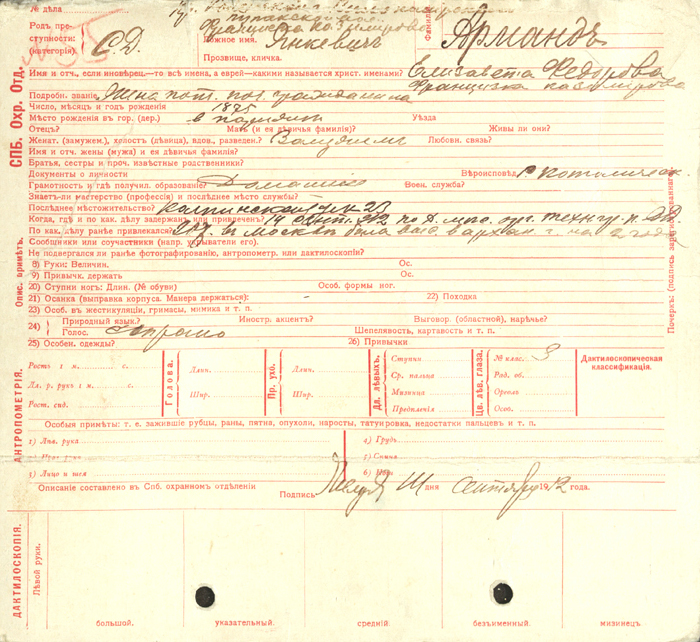 № дѣла
Родъ пре-
ступности:
(категорія).
СД.
Ложное имя. Янкевичъ
Прозвище, кличка.
Фамилія
Армандъ
Имя и отч., если иновѣрец.—то всѣ имена, а еврей—какими называется христ. именами? Елизавета Федорова
Франциска Казимірова
Подробн. званіе. Жена пот. поч. гражданина
Число, мѣсяцъ и годъ рожденія 1875
Мѣсто рожденія въ гор. (дер.) в Париже Уѣзда
Отецъ? Мать (и ея дѣвичья фамилія)? Живы ли они?
Женат. (замужем.), холостъ (дѣвица), вдов., разведен.? Любовн. связь?
Имя и отч. жены (мужа) и ея дѣвичья фамилія?
Братья, сестры и проч. извѣстные родственники?
Документы о личности Вѣроисповѣд.
Грамотность и гдѣ получил. образованіе? Домашнее Воен. служба?
Знаетъ-ли мастерство (профессія) и послѣднее мѣсто службы?
Послѣднее мѣстожительство? Колпинская
Когда, гдѣ и по как. дѣлу задержан. или привлечен? 14 сент. 912 по д.
По как. дѣлу ранѣе привлекался? 907. в Москве была выс. в архан. г. на 2 года
Сообщники или соучастники (напр. укрыватели его).
Не подвергался ли ранѣе фотографированію, антропометр. или дактилоскопіи?
8) Руки: Величин. Ос.
9) Привычк. держать Ос.
20) Ступни ногъ: Длин. (№ обуви) Особ. формы ног.
21) Осанка (выправка корпуса. Манера держаться): 22) Походка
23) Особ. въ жестикуляціи, гримасы, мимика и т. п.
24) Природный языкъ.? Иностр. акцентъ? Выговор. (областной), нарѣчье?
Голос. Сопрано Шепелявость, картавость и т. п.
25) Особен. одежды? 26) Привычки
СПБ. Охр. Отд.
Опис. примѣтъ.
Почеркъ: (подпись зарегистрованнаго)
АНТРОПОМЕТРІЯ.
Ростъ 1 м. с.
Дл. р. рукъ 1 м. с.
Рост. сид. с.
Голова.
Длин.
Шир.
Пр. ухо.
Длин.
Шир.
Дл. лѣвыхъ.
Ступни
Ср. пальца
Мизинца
Предплечія
Цв. лѣв. глаза.
№ клас. 3
Род. об.
Ореолъ
Особ.
Дактилоскопическая
классификація.
Особыя примѣты: т. е. зажившіе рубцы, раны, пятна, опухоли, наросты, татуировка, недостатки пальцевъ и т. п.
1) Лѣв. рука 4) Грудь
2) Прав. рука 5) Спина
3) Лицо и шея 6)
Описаніе составлено въ Спб. охранномъ отдѣленіи
Подпись дня сентября 1912 года.
ДАКТИЛОСКОПІЯ.
Лѣвой руки.
большой. указательный. средній. безъименный. мизинец